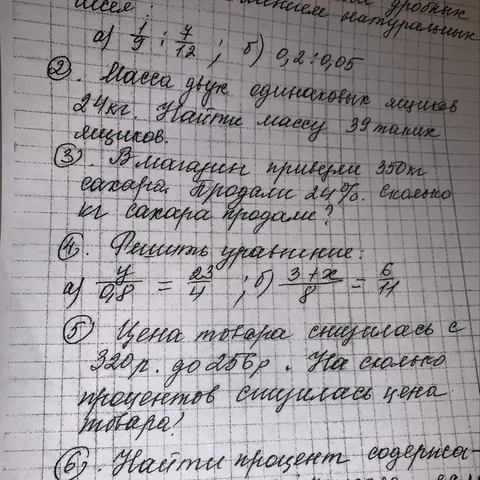 дробных
числа: отношением натуральных
а) 1/9 : 7/12 ; б) 0,2 : 0,05
② . Масса двух одинаковых ящиков
24кг. Найти массу 39 таких
ящиков.
③ . В магазин привезли 350кг
сахара. Продали 24%. Сколько
кг сахара продали?
④ . Решить уравнение:
а) y/0,8 = 23/4 ; б) 3+x/8 = 6/11
⑤ Цена товара снизилась с
320р. до 256р. На сколько
процентов снизилась цена
товара?
⑥ . Найти процент содержа-